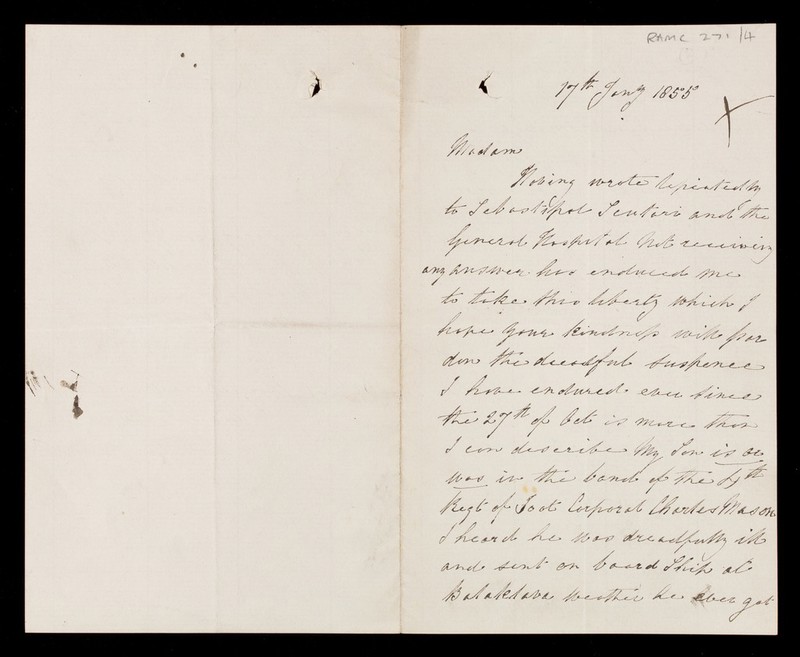 RAMC 271/4
17th Jany 1855
Madam
Having wrote repeatedly
to Sebastipol Scutari and the
General Hospital Not receiving
any answer has enduced me
to take this liberty which I
hope your kindness will par
don the dreadful suspence
I have endured ever since
the 27th of Oct is more than
I can describe My Son is or
was in the band of the 4th
Regt of Foot Corporal Charles Mason
I heard he was dreadfully ill
and sent on board Ship at
Balaklava weather he ever got